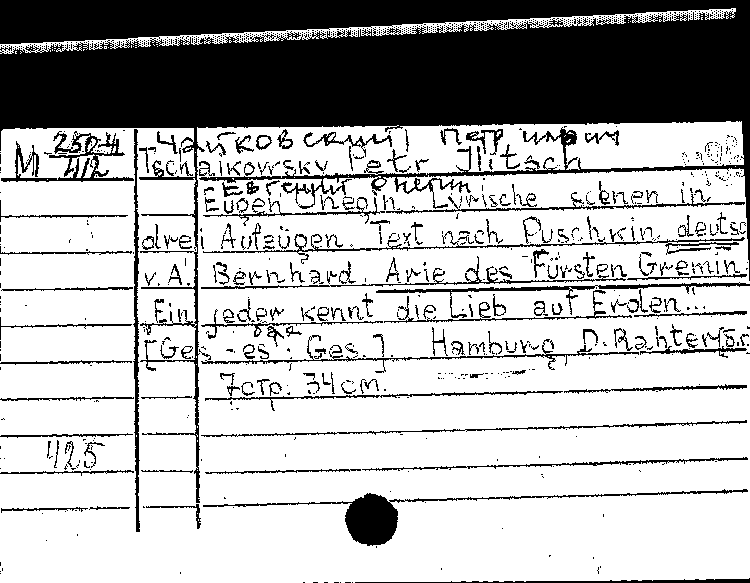 Чайковский Петр Ильич
М 250-4/412 Tschaikowsky Petr Ilitsch
Евгений Онегин
Eugen Onegin. Lyrische scenen in
drei Aufzügen. Text nach Puschkin deutsc
v. A. Bernhard. Arie des "Fürsten Gremin
"Ein jeder kennt die Lieb auf Erden".
[Ges - es; Ges.]. Hamburg, D. Rahter
7 стр. 34 см.
425